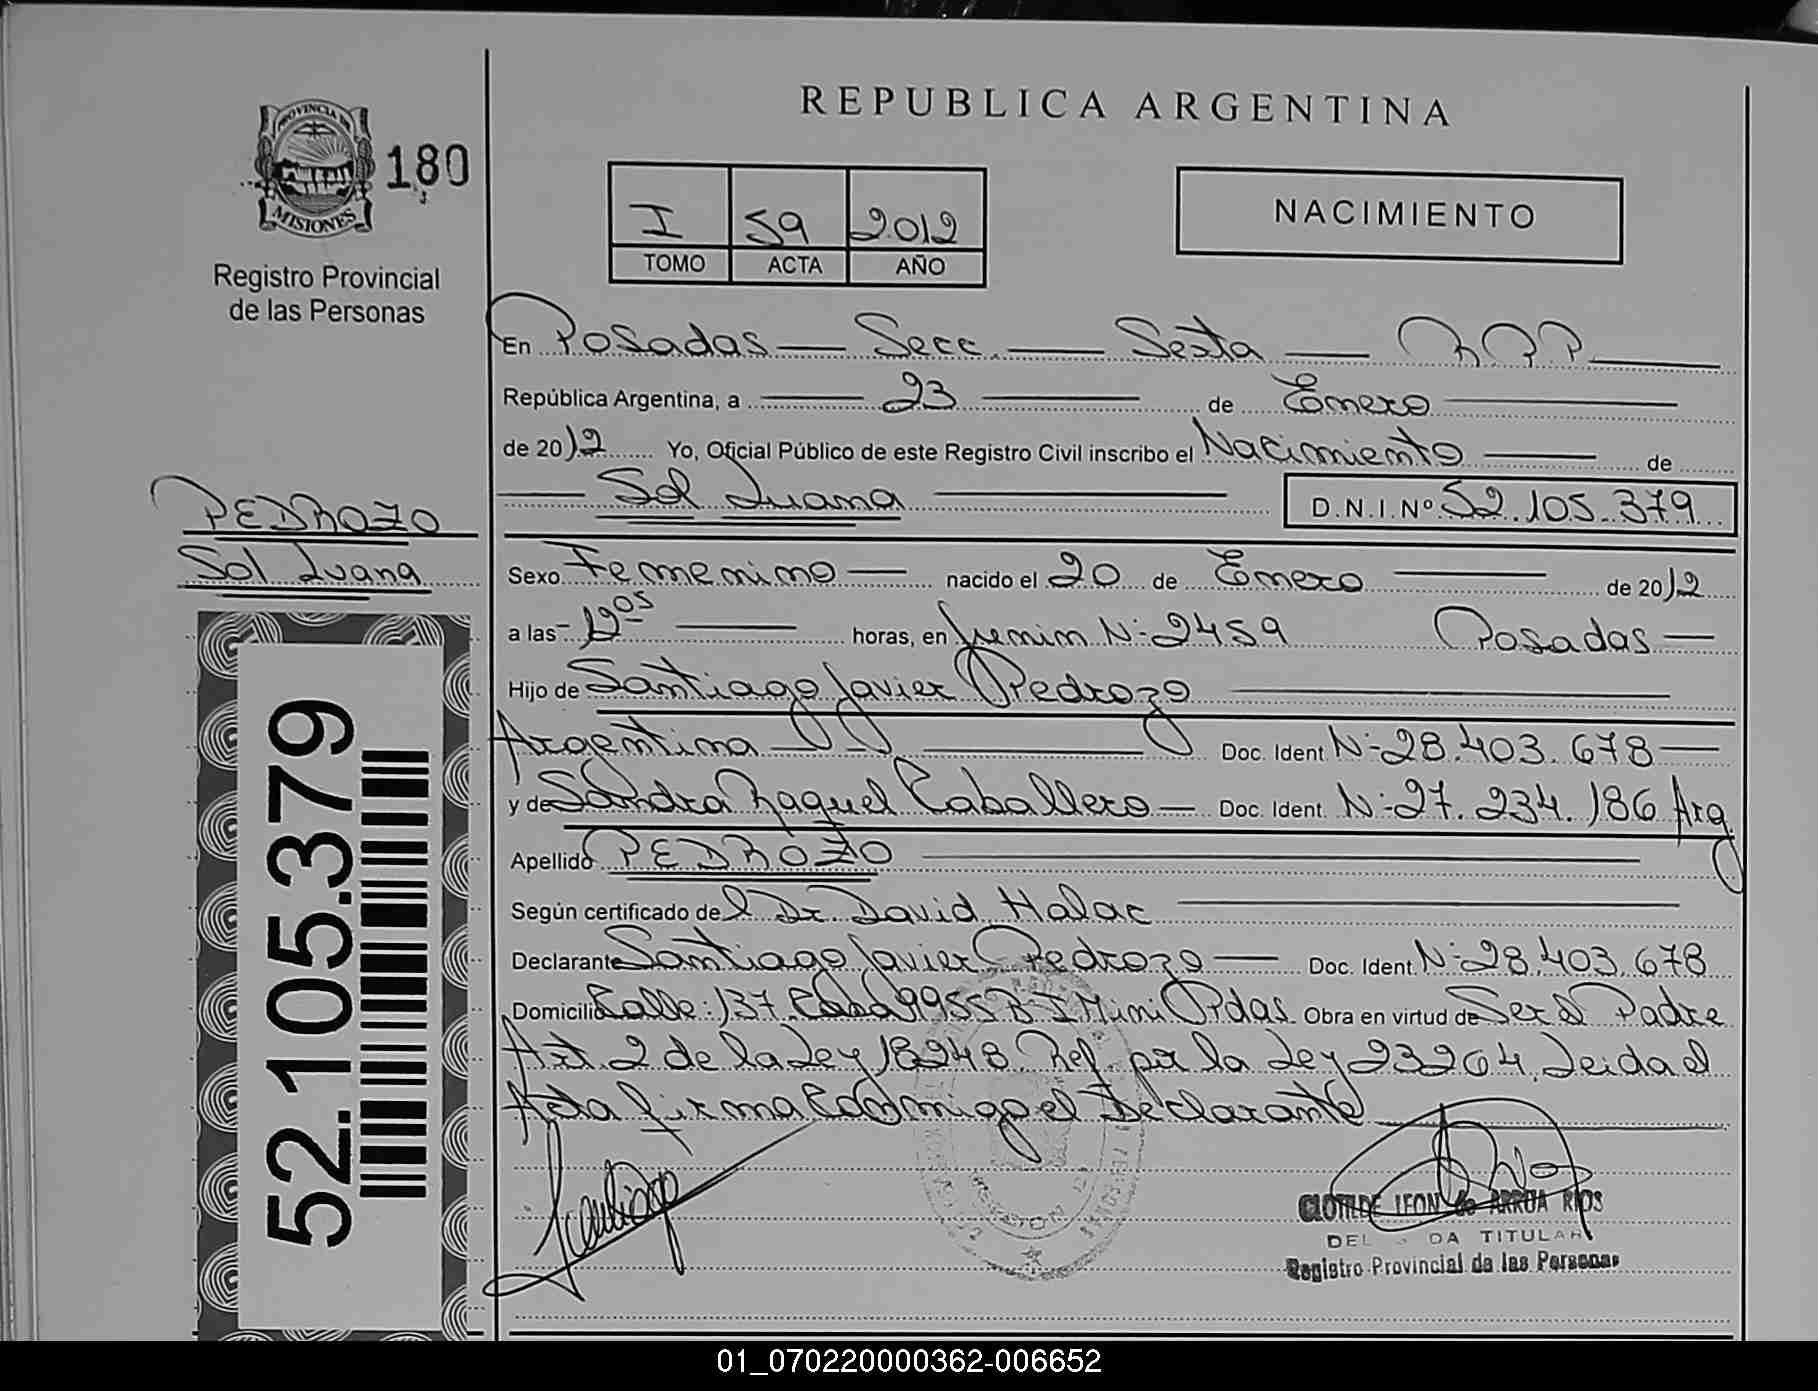 REPUBLICA ARGENTINA
PROVINCIA DE
MISIONES
180
Registro Provincial
de las Personas
I 59 2012
TOMO ACTA AÑO
NACIMIENTO
En Posadas — Secc. — Sexta — R.P.P.
República Argentina, a 23 de Enero
de 2012 Yo, Oficial Público de este Registro Civil inscribo el Nacimiento — de
Sol Luana D.N.I.Nº 52.105.379
PEDROZO
Sol Luana
Sexo Femenino — nacido el 20 de Enero de 2012
a las 12 05 horas, en Junin N:-2459 Posadas —
Hijo de Santiago Javier Pedrozo
Argentina Doc. Ident. N:-28.403.678 —
y de Sandra Raquel Caballero — Doc. Ident. N:-27.234.186 Arg
Apellido PEDROZO
Según certificado del Dr. David Halac
Declarante Santiago Javier Pedrozo — Doc. Ident. N:-28.403.678
Domicilio Calle: 137 Casa 9955 B I Mini Pdas. Obra en virtud de Ser el Padre
Art. 2 de la Ley 18248 Ref. por la Ley 23264. Leida el
Acta firma Conmigo el Declarante
52.105.379
Santiago
CLOTILDE LEON de ARRUA RIOS
DEL DA TITULAR
Registro Provincial de las Personas
01_070220000362-006652